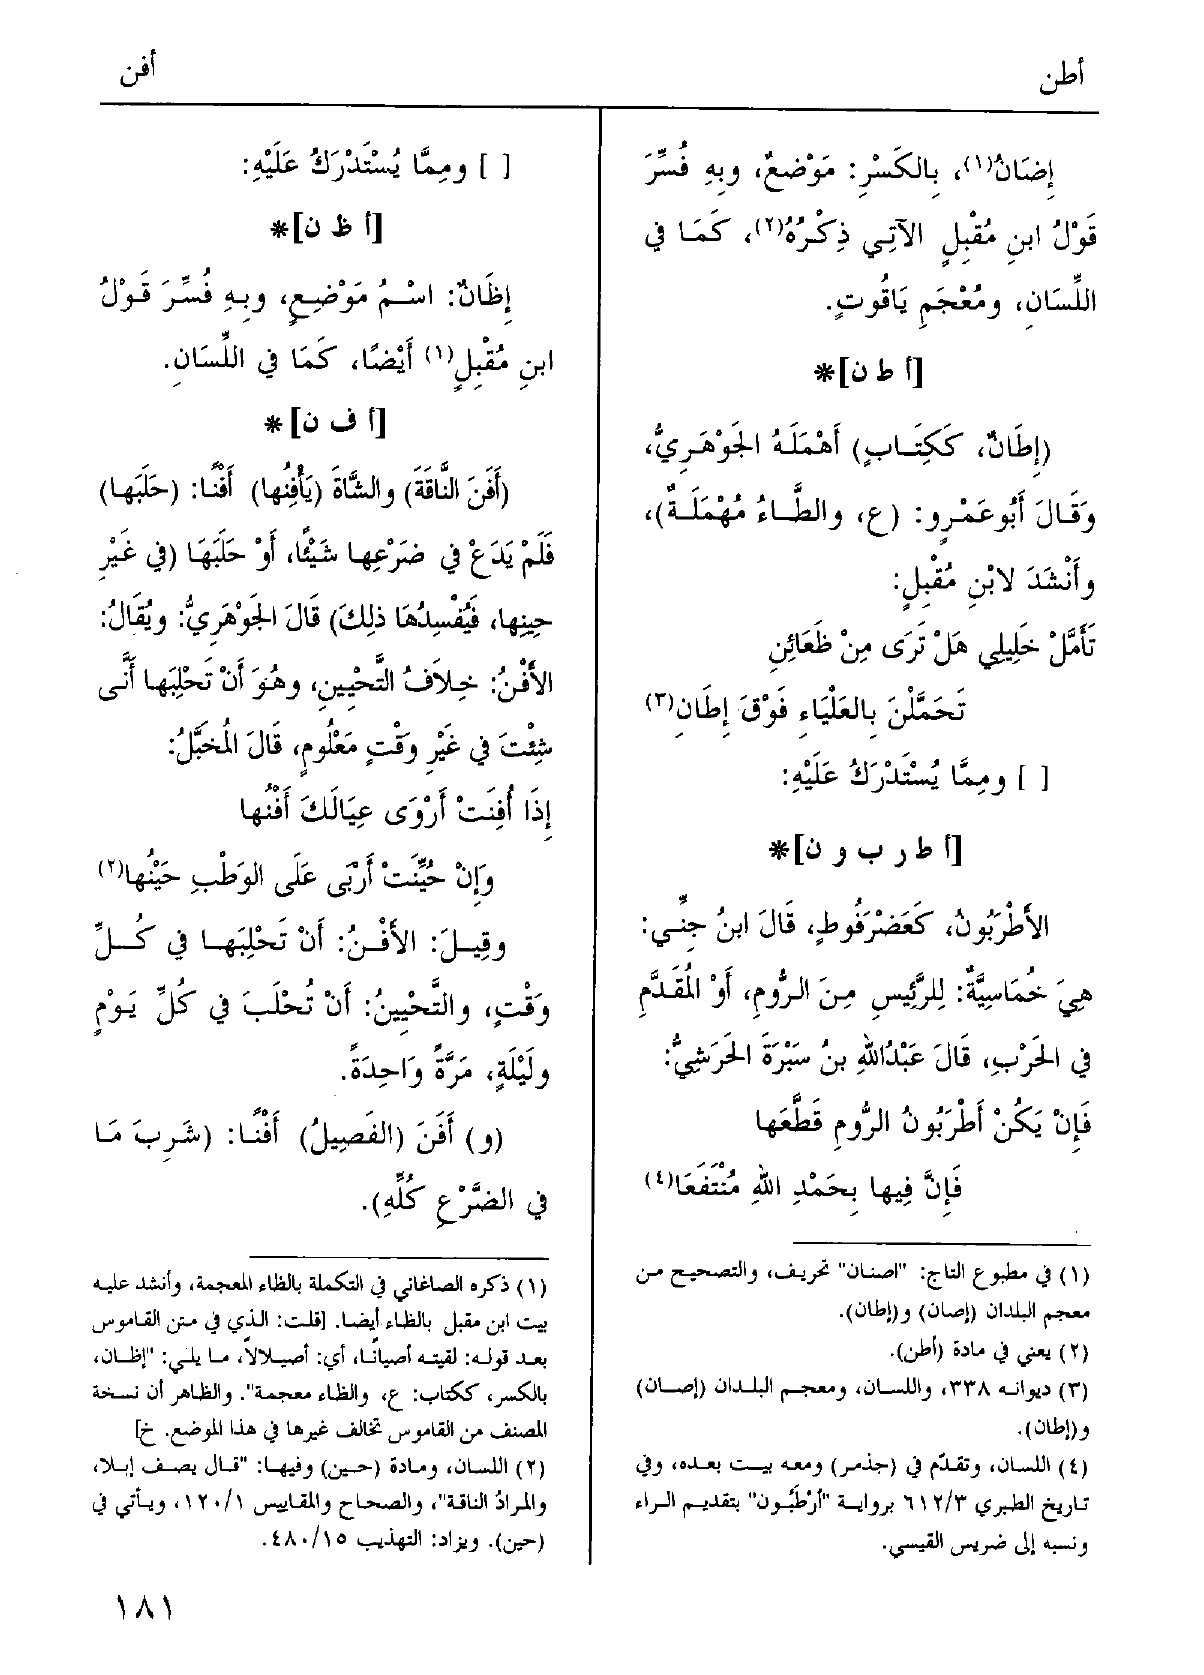 أطن
أفن
إِضَانُ(١)، بِالكَسْرِ: مَوْضِعٌ، وبِهِ فُسِّرَ
قَوْلُ ابنِ مُقْبِلٍ الآتِي ذِكْرُهُ(٢)، كَمَا في
اللِّسَانِ، ومُعْجَمِ يَاقُوتٍ.
[أ ط ن]*
(إِطَانٌ، كَكِتَابٍ) أَهْمَلَهُ الجَوْهَرِيُّ،
وَقَالَ أَبُوعَمْرٍو: (ع، والطَّاءُ مُهْمَلَةٌ)،
وأَنْشَدَ لابْنِ مُقْبِلٍ:
تَأَمَّلْ خَلِيلِي هَلْ تَرَى مِنْ ظَعَائِنٍ
تَحَمَّلْنَ بِالعَلْيَاءِ فَوْقَ إِطَانِ(٣)
[ ] ومِمَّا يُسْتَدْرَكُ عَلَيْهِ:
[أ ط ر ب و ن]*
الأَطْرَبُونُ، كَعَضْرَفُوطٍ، قَالَ ابنُ جِنِّي:
هِيَ خُمَاسِيَّةٌ: لِلرَّئِيسِ مِنَ الرُّومِ، أَوْ المُقَدَّمِ
في الحَرْبِ، قَالَ عَبْدُاللهِ بنُ سَبْرَةَ الحَرَشِيُّ:
فَإِنْ يَكُنْ أَطْرَبُونُ الرُّومِ قَطَّعَها
فَإِنَّ فِيها بِحَمْدِ اللهِ مُنْتَفَعَا(٤)
(١) في مطبوع التاج: "اصنان" تحريف، والتصحيح من
معجم البلدان (إصان) و(إطان).
(٢) يعني في مادة (أطن).
(٣) ديوانه ٣٣٨، واللسان، ومعجم البلدان (إصان)
و(إطان).
(٤) اللسان، وتقدّم في (جذمر) ومعه بيت بعده، وفي
تاريخ الطبري ٦١٢/٣ برواية "أَرْطَبُون" بتقديم الراء
ونسبه إلى ضريس القيسي.
[ ] ومِمَّا يُسْتَدْرَكُ عَلَيْهِ:
[أ ظ ن]*
إِظَانٌ: اسْمُ مَوْضِعٍ، وبِهِ فُسِّرَ قَوْلُ
ابنِ مُقْبِلٍ(١) أَيْضًا، كَمَا في اللِّسَانِ.
[أ ف ن]*
(أَفَنَ النَّاقَةَ) والشَّاةَ (يَأْفِنُها) أَفْنًا: (حَلَبَها)
فَلَمْ يَدَعْ في ضَرْعِها شَيْئًا، أَوْ حَلَبَهَا (في غَيْرِ
حِينِها، فَيُفْسِدُهَا ذلِكَ) قَالَ الجَوْهَرِيُّ: ويُقَالُ:
الأَفْنُ: خِلاَفُ التَّحْيينِ، وهُوَ أَنْ تَحْلِبَها أَنَّى
شِئْتَ في غَيْرِ وَقْتٍ مَعْلُومٍ، قَالَ المُخَبَّلُ:
إِذَا أُفِنَتْ أَرْوَى عِيَالَكَ أَفْنُها
وَإِنْ حُيِّنَتْ أَرْبَى عَلَى الوَطْبِ حَيْنُها(٢)
وقِيلَ: الأَفْنُ: أَنْ تَحْلِبَها في كُلِّ
وَقْتٍ، والتَّحْيِينُ: أَنْ تُحْلَبَ في كُلِّ يَوْمٍ
ولَيْلَةٍ، مَرَّةً وَاحِدَةً.
(و) أَفَنَ (الفَصِيلُ) أَفْنًا: (شَرِبَ مَا
في الضَّرْعِ كُلَّهِ).
(١) ذكره الصاغاني في التكملة بالظاء المعجمة، وأنشد عليه
بيت ابن مقبل بالظاء أيضا. [قلت: الذي في متن القاموس
بعد قوله: لقيته أصيانًا، أي: أصيلالاً، ما يلي: "إظان،
بالكسر، ككتاب: ع، والظاء معجمة". والظاهر أن نسخة
المصنف من القاموس تخالف غيرها في هذا الموضع. خ]
(٢) اللسان، ومادة (حين) وفيها: "قال يصف إبلا،
والمرادُ الناقة"، والصحاح والمقاييس ١٢٠/١، ويأتي في
(حين). ويزاد: التهذيب ٤٨٠/١٥.
١٨١